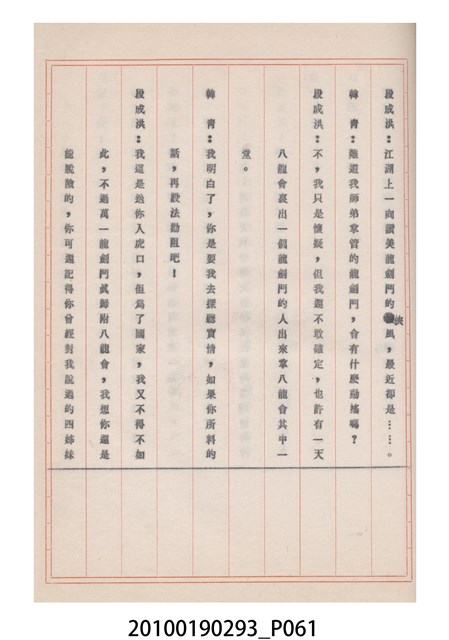 段成洪：江湖上一向讚美龍劍門的俠風，最近卻是……。
韓　青：難道我師弟掌管的龍劍門，會有什麼動搖嗎？
段成洪：不，我只是懷疑，但我還不敢確定，也許有一天
八龍會裏出一個龍劍門的人出來掌八龍會其中一
堂。
韓　青：我明白了，你是要我去探聽實情，如果你所料的
話，再設法勸阻吧！
段成洪：我還是逊你入虎口，但爲了國家，我又不得不如
此，不過萬一龍劍門眞歸附八龍會，我想你還是
能脫險的，你可還記得你曾經對我說過的四姊妹
20100190293_P061